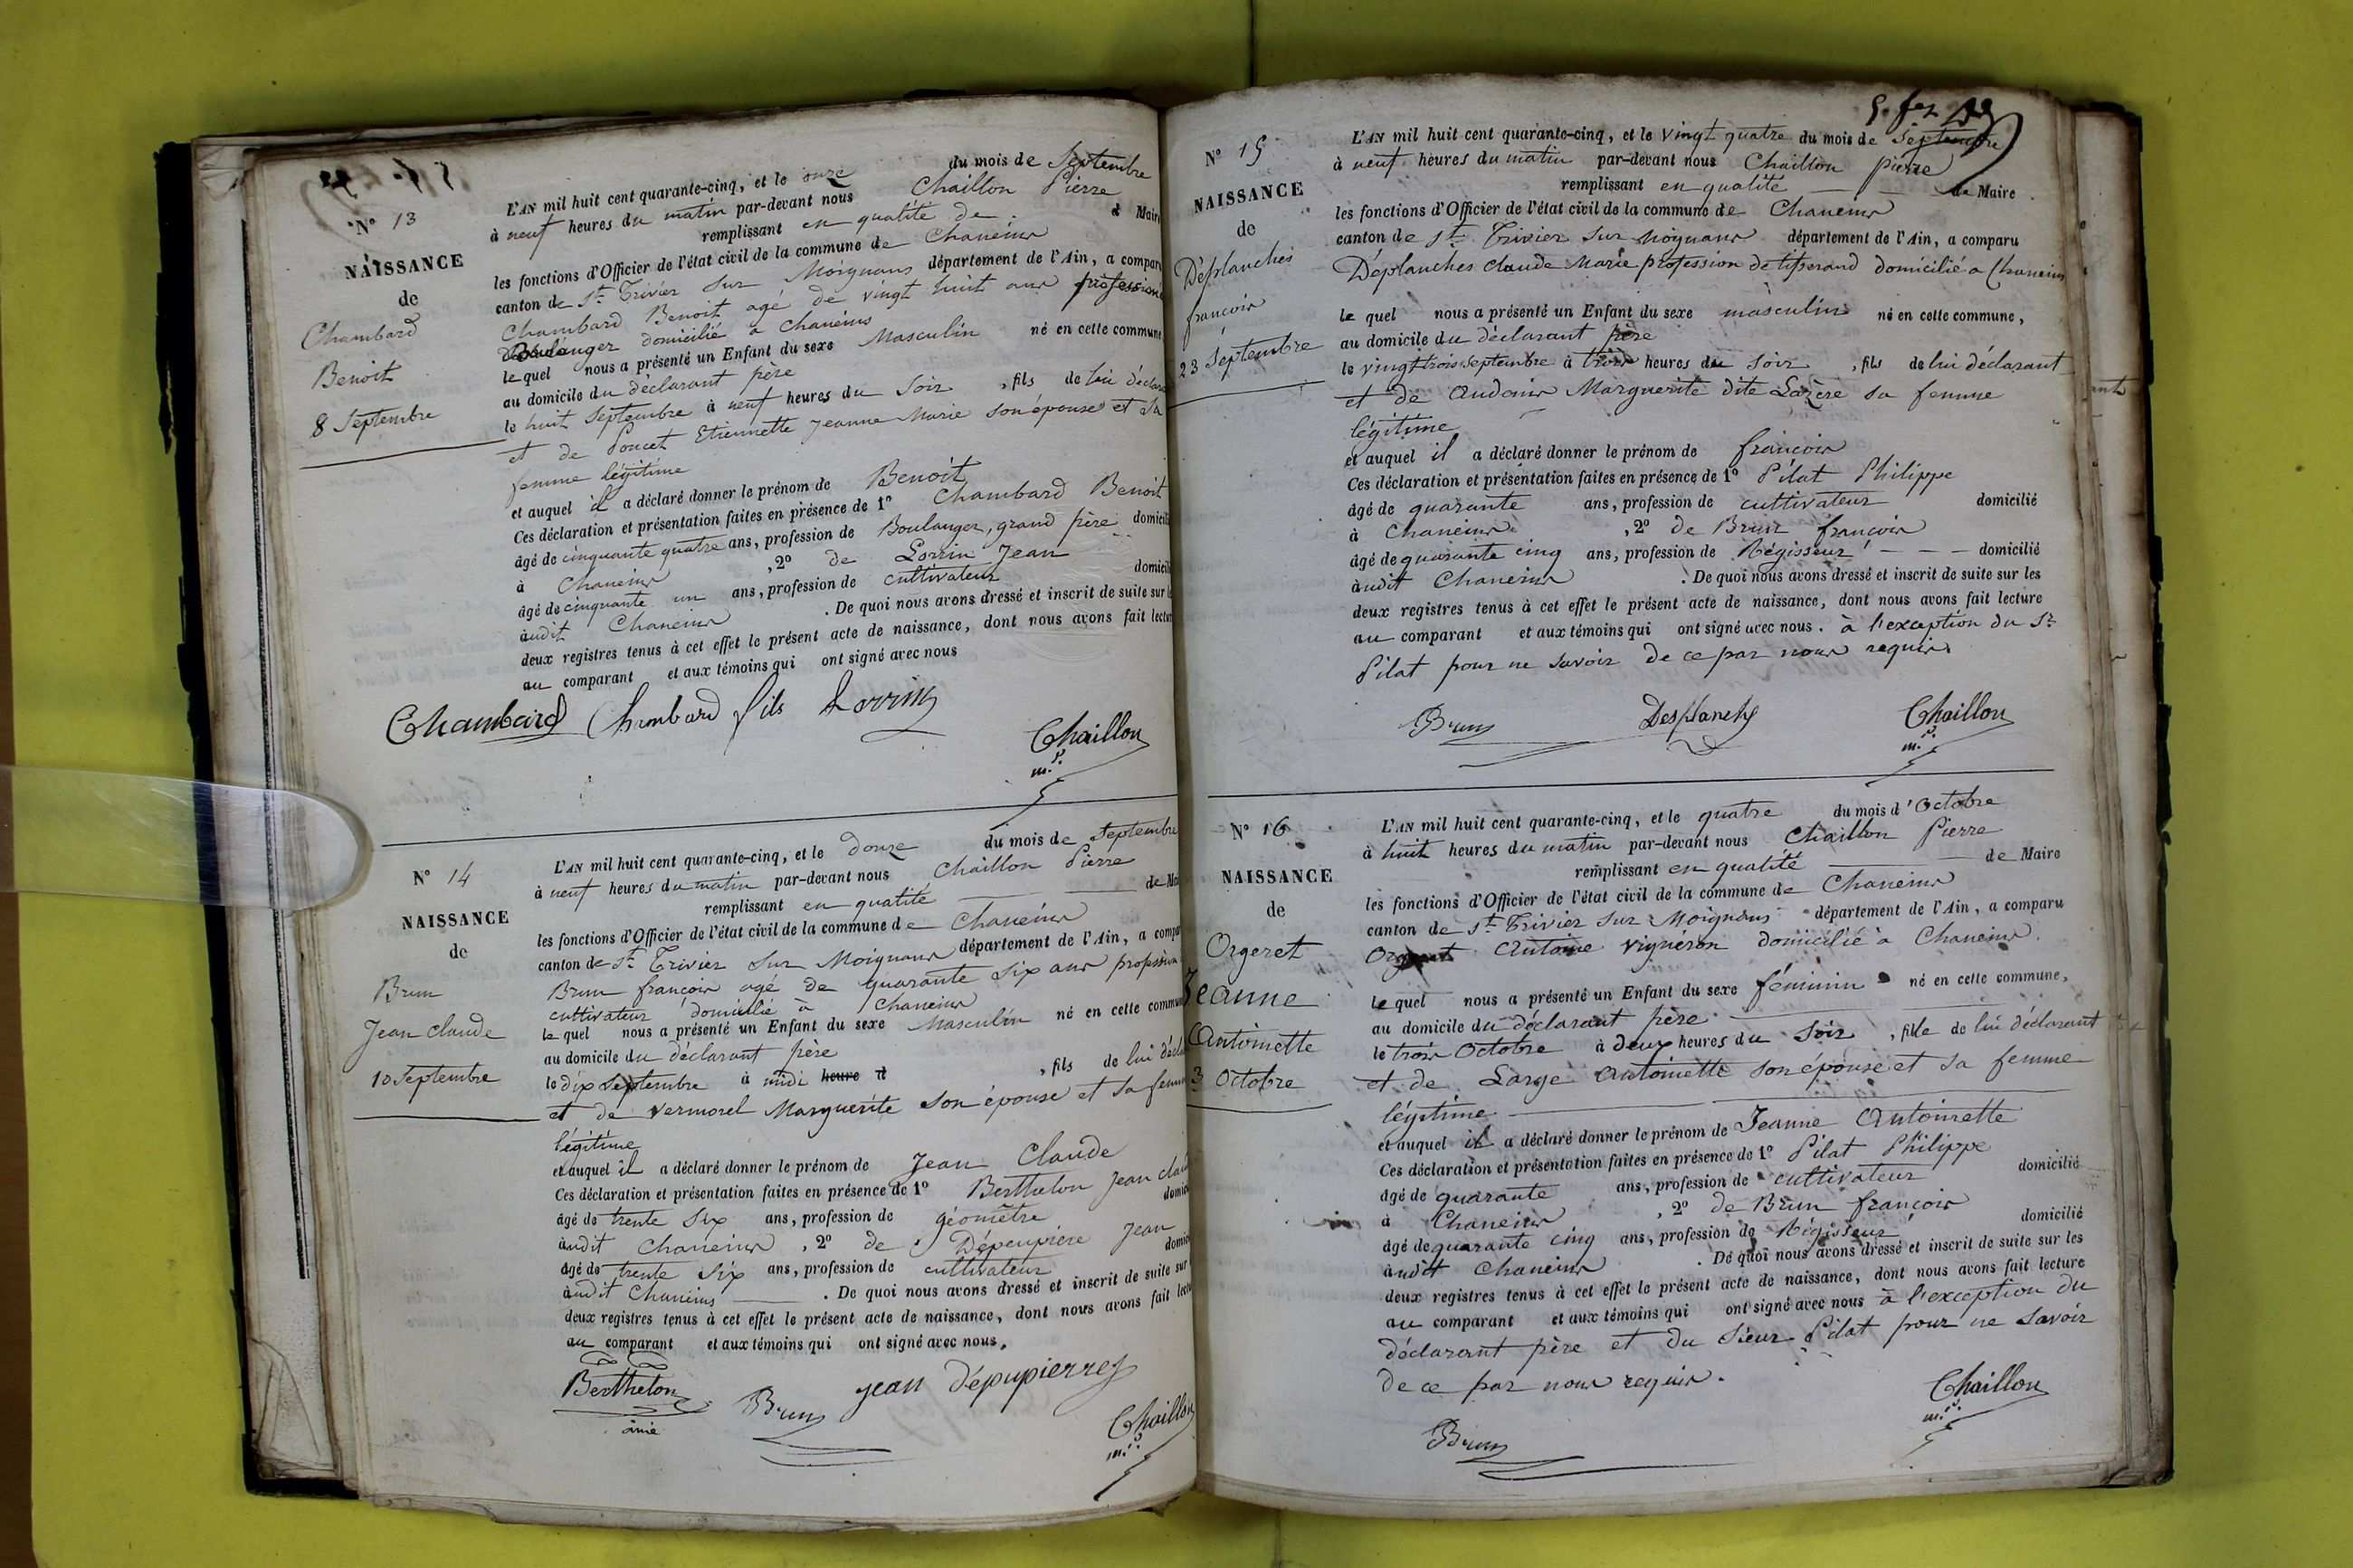 N° 13
NAISSANCE
de
Chambard
Benoit
8 Septembre
L'AN mil huit cent quarante-cinq, et le onze du mois de Septembre
à neuf heures du matin par-devant nous Chaillon Pierre
remplissant en qualité de d Maire
les fonctions d'Officier de l'état civil de la commune de Chaneins
canton de St Trivier sur Moignans département de l'Ain, a comparu
Chambard Benoit agé de vingt huit ans profession
Boulanger domicilié a Chaneins
le quel nous a présenté un Enfant du sexe Masculin né en cette commune
au domicile du déclarant père
le huit Septembre à neuf heures du Soir , fils de lui déclara
et de Poncet Etiennette Jeanne Marie son épouse et sa
femme légitime
et auquel il a déclaré donner le prénom de Benoit
Ces déclaration et présentation faites en présence de 1° Chambard Benoit
âgé de cinquante quatre ans, profession de Boulanger, grand père domicilié
à Chaneins , 2° de Lorrin Jean
âgé de cinquante un ans, profession de cultivateur domicilié
audit Chaneins . De quoi nous avons dressé et inscrit de suite sur
deux registres tenus à cet effet le présent acte de naissance, dont nous avons fait lecture
au comparant et aux témoins qui ont signé avec nous
Chambard Chambard fils Lorrin
Chaillon
N° 14
NAISSANCE
de
Brun
Jean Claude
10 Septembre
L'AN mil huit cent quarante-cinq, et le douze du mois de Septembre
à neuf heures du matin par-devant nous Chaillon Pierre
remplissant en qualité de Maire
les fonctions d'Officier de l'état civil de la commune de Chaneins
canton de St Trivier sur Moignans département de l'Ain, a compar
Brun françois agé de quarante six ans profession
cultivateur domicilié à Chaneins
le quel nous a présenté un Enfant du sexe Masculin né en cette commun
au domicile du déclarant père
le dix Septembre à midi heure d , fils de lui décla
et de Vermorel Marguerite son épouse et sa femme
légitime
et auquel il a déclaré donner le prénom de Jean Claude
Ces déclaration et présentation faites en présence de 1° Berthelon Jean Clau
âgé de trente six ans, profession de géomètre domici
audit Chaneins , 2° de Dépeupière Jean
âgé de trente six ans, profession de cultivateur domici
audit Chaneins . De quoi nous avons dressé et inscrit de suite sur
deux registres tenus à cet effet le présent acte de naissance, dont nous avons fait lectu
au comparant et aux témoins qui ont signé avec nous.
Berthelon Brun Jean Dépupierre
ainé
Chaillon
N° 15
NAISSANCE
de
Déplanches
françois
23 Septembre
L'AN mil huit cent quarante-cinq, et le vingt quatre du mois de Septembre
à neuf heures du matin par-devant nous Chaillon Pierre
remplissant en qualité de Maire
les fonctions d'Officier de l'état civil de la commune de Chaneins
canton de St Trivier sur Moignans département de l'Ain, a comparu
Déplanches Claude Marie profession de tisserand domicilié a Chaneins
le quel nous a présenté un Enfant du sexe masculin né en cette commune,
au domicile du déclarant père
le vingt trois septembre à trois heures du soir , fils de lui déclarant
et de Audouin Marguerite dite Lazère sa femme
légitime
et auquel il a déclaré donner le prénom de françois
Ces déclaration et présentation faites en présence de 1° Pilat Philippe
âgé de quarante ans, profession de cultivateur domicilié
à Chaneins , 2° de Brun françois
âgé de quarante cinq ans, profession de Régisseur domicilié
audit Chaneins . De quoi nous avons dressé et inscrit de suite sur les
deux registres tenus à cet effet le présent acte de naissance, dont nous avons fait lecture
au comparant et aux témoins qui ont signé avec nous. à l'exception du Sr
Pilat pour ne savoir de ce par nous requis
Brun Desplanche Chaillon
N° 16
NAISSANCE
de
Orgeret
Jeanne
Antoinette
3 Octobre
L'AN mil huit cent quarante-cinq, et le quatre du mois d'Octobre
à huit heures du matin par-devant nous Chaillon Pierre
remplissant en qualité de Maire
les fonctions d'Officier de l'état civil de la commune de Chaneins
canton de St Trivier sur Moignans département de l'Ain, a comparu
Orgeret Antoine vigneron domicilié à Chaneins.
le quel nous a présenté un Enfant du sexe féminin né en cette commune,
au domicile du déclarant père
le trois Octobre à deux heures du soir , fille de lui déclarant
et de Large Antoinette son épouse et sa femme
légitime
et auquel il a déclaré donner le prénom de Jeanne Antoinette
Ces déclaration et présentation faites en présence de 1° Pilat Philippe
âgé de quarante ans, profession de cultivateur domicilié
à Chaneins , 2° de Brun françois
âgé de quarante cinq ans, profession de Régisseur domicilié
audit Chaneins . De quoi nous avons dressé et inscrit de suite sur les
deux registres tenus à cet effet le présent acte de naissance, dont nous avons fait lecture
au comparant et aux témoins qui ont signé avec nous à l'exception du
déclarant père et du Sieur Pilat pour ne savoir
de ce par nous requis.
Chaillon
Brun